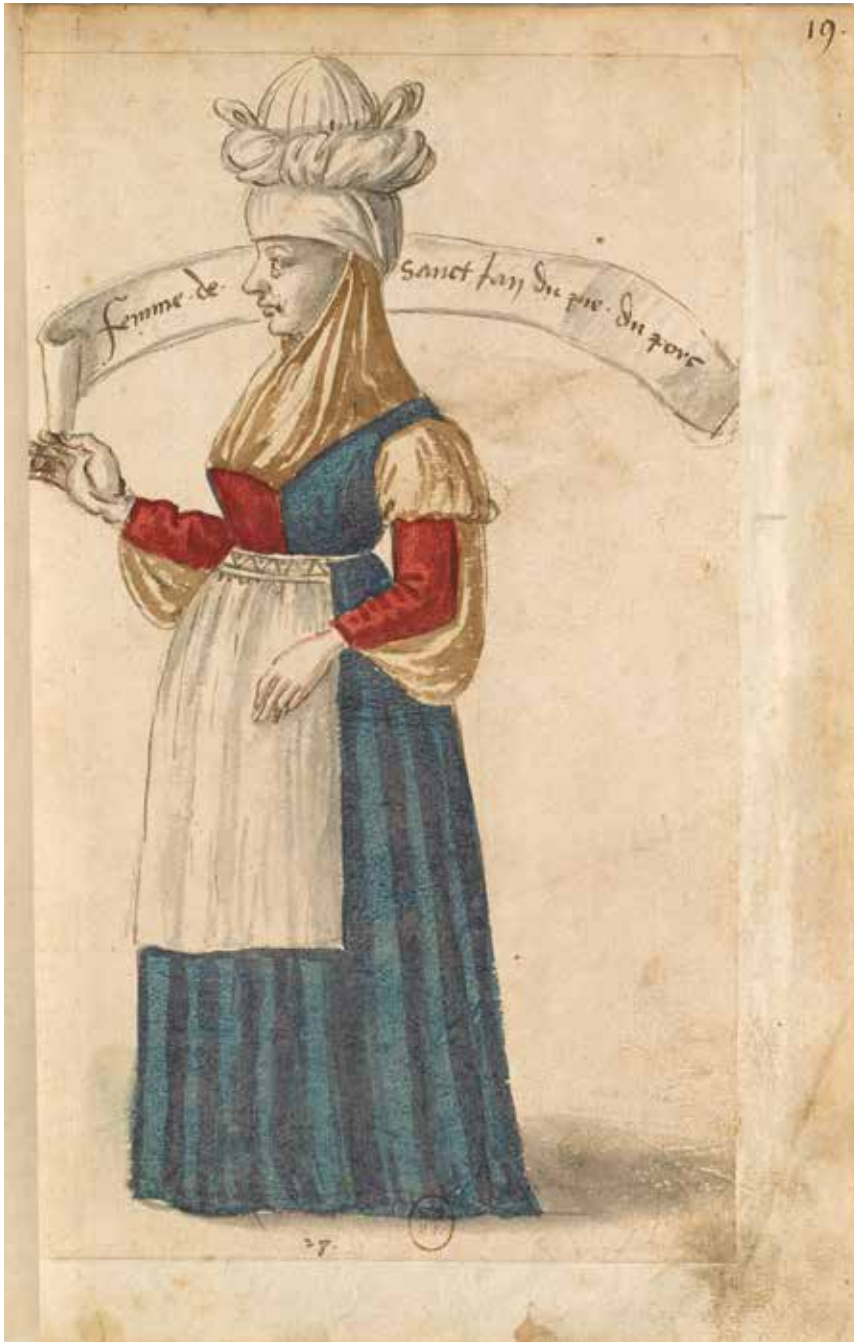 19.
femme · de · sanct Jan du pie · du porc
27.